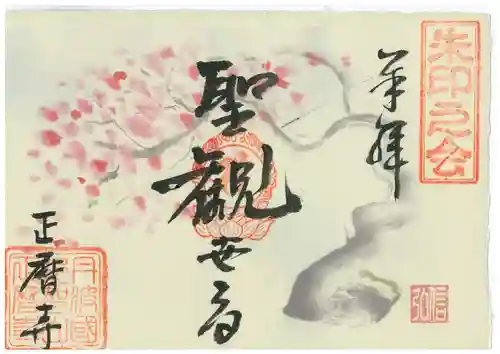 奉拝
朱印之会
聖観世音
正暦寺
丹波國
信